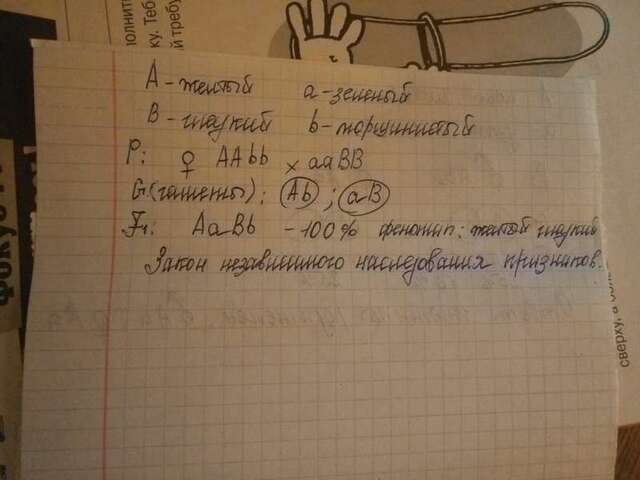 полнить
ку. Теб
й требу
А - желтый а - зеленый
В - гладкий b - морщинистый
P: ♀ AAbb × aaBB
G(гаметы): Ab ; aB
F1: AaBb - 100% фенотип: желтый гладкий
Закон независимого наследования признаков.
сверху, а